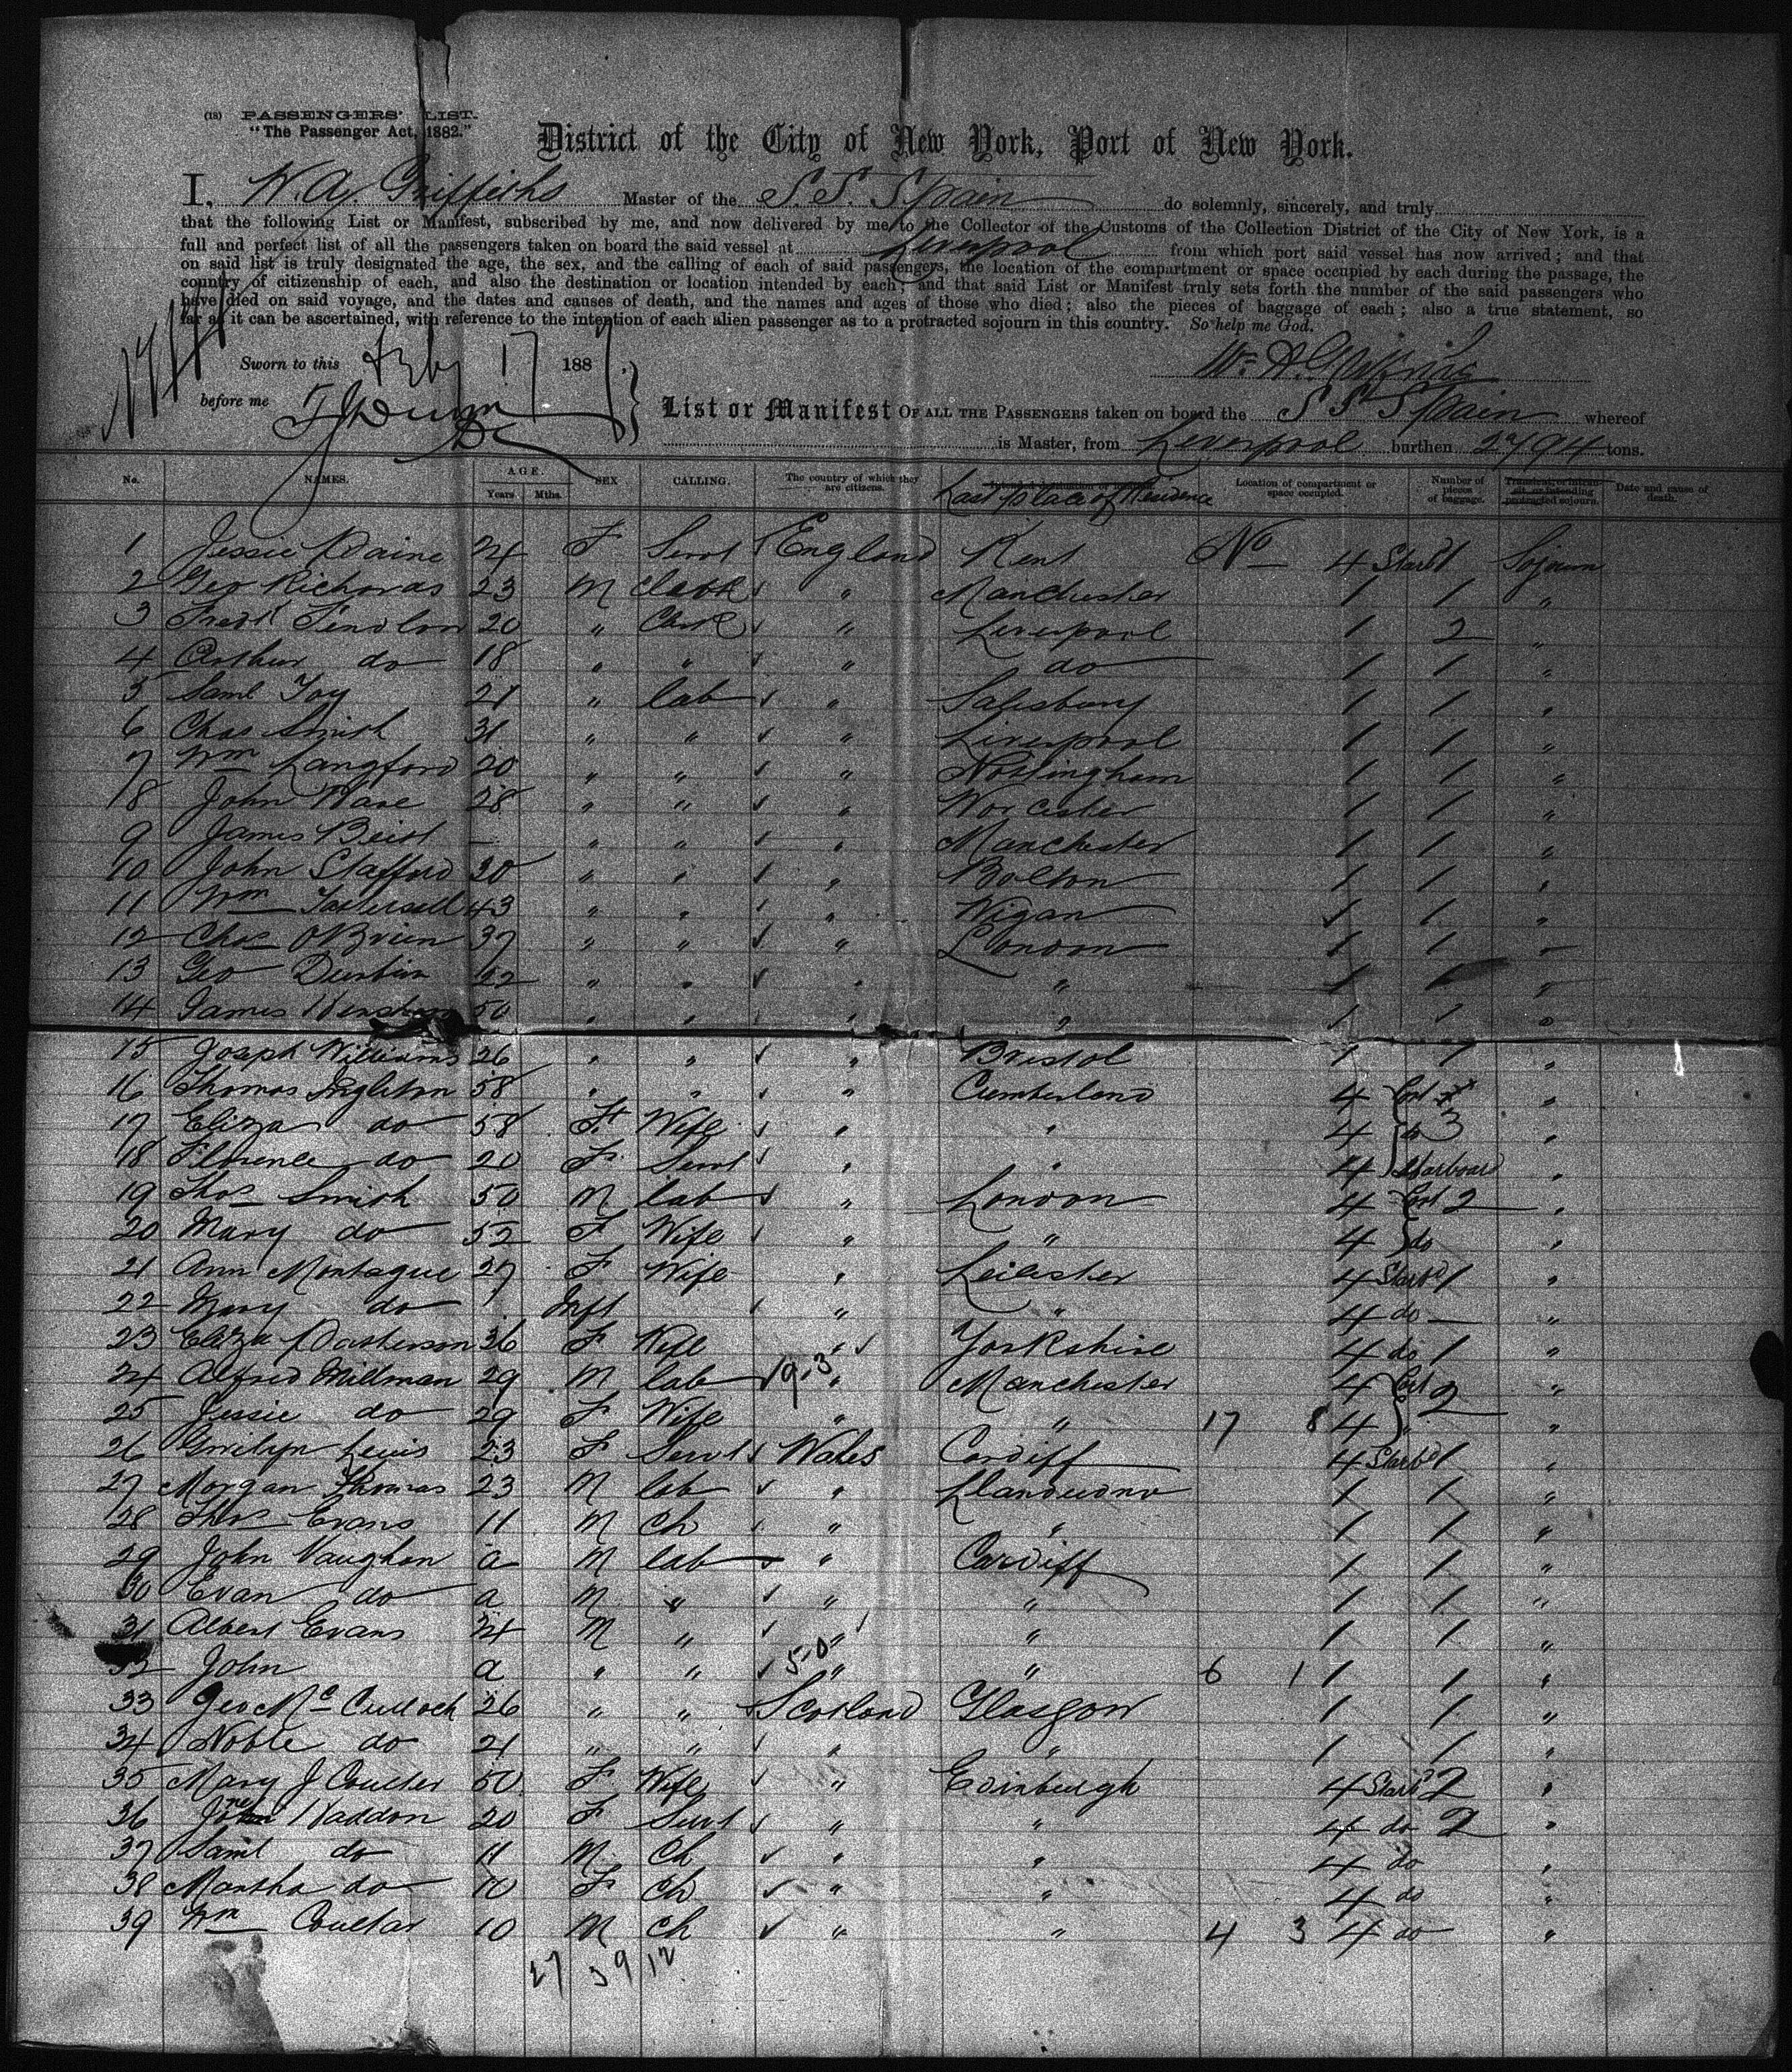 (18) PASSENGERS' LIST.
"The Passenger Act, 1882."
District of the City of New York, Port of New York.
I, W. A. Griffiths Master of the S.S. Spain do solemnly, sincerely, and truly
that the following List or Manifest, subscribed by me, and now delivered by me to the Collector of the Customs of the Collection District of the City of New York, is a
full and perfect list of all the passengers taken on board the said vessel at Liverpool from which port said vessel has now arrived; and that
on said list is truly designated the age, the sex, and the calling of each of said passengers, the location of the compartment or space occupied by each during the passage, the
country of citizenship of each, and also the destination or location intended by each; and that said List or Manifest truly sets forth the number of the said passengers who
have died on said voyage, and the dates and causes of death, and the names and ages of those who died; also the pieces of baggage of each; also a true statement, so
far as it can be ascertained, with reference to the intention of each alien passenger as to a protracted sojourn in this country. So help me God.
Sworn to this Feby 17 1887
before me
List or Manifest OF ALL THE PASSENGERS taken on board the S S Spain whereof
is Master, from Liverpool burthen tons.
No. NAMES. AGE. Years Mths. SEX CALLING. The country of which they are citizens. Last place of Residence Location of compartment or space occupied. Number of pieces of baggage. Date and cause of death.
1 Jessie Paine 24 F Servt England Kent No 4 Starb 1 Sojourn
2 Geo Richards 23 M Clerk " Manchester 1 1 "
3 Fredk 20 " Clerk " Liverpool 1 2 "
4 Arthur do 18 " " " do 1 1 "
5 Saml Toy 21 " lab " Salisbury 1 1 "
6 Chas Smith 31 " " " Liverpool 1 1 "
7 Wm Langford 20 " " " Nottingham 1 1 "
8 John Ware 28 " " " Worcester 1 1 "
9 James - " " " Manchester 1 1 "
10 John Stafford 30 " " " Bolton 1 1 "
11 Wm Tattersall 43 " " " Wigan 1 1 "
12 Chas OBrien 37 " " " London 1 1 "
13 Geo Durbin " " " " 1 1 "
14 James 50 " " " " 1 1 "
15 Joseph Williams 26 " " " Bristol 1 1 "
16 Thomas Ingleton 58 " " " Cumberland 4 Port "
17 Eliza do 58 F Wife " " 4 do 3 "
18 Florence do 20 F Servt " " 4 Starboard "
19 Thos Smith 50 M lab " London 4 Port 2 "
20 Mary do 52 F Wife " " 4 do "
21 Ann Montague 27 F Wife " Leicester 4 Starbd 1 "
22 Mary do Inft " " 4 do - "
23 Eliza Patterson 36 F Wife " Yorkshire 4 do 1 "
24 Alfred Millman 29 M lab 19.3 " Manchester 4 Port 2 "
25 Jessie do 29 F Wife " " 17 8 4 " "
26 Gwilyn Lewis 23 F Servt Wales Cardiff 4 Starbd 1 "
27 Morgan Thomas 23 M lab " 1 1 "
28 Thos Evans 11 M Ch " " 1 1 "
29 John Vaughan a M lab " Cardiff 1 1 "
30 Evan do a M " " " 1 1 "
31 Albert Evans 24 M " " " 1 1 "
32 John a " " 5.0 " " 6 1 1 1 "
33 Geo Mc Culloch 26 " " Scotland Glasgow 1 1 "
34 Noble do 21 " " " " 1 1 "
35 Mary J Coulter 50 F Wife " Edinburgh 4 Starb 2 "
36 Haddon 20 F Servt " " 4 do 2 "
37 Saml do 11 M Ch " " 4 do "
38 Martha do 10 F Ch " " 4 do "
39 Wm Coulter 10 M Ch " " 4 3 4 do "
27 39 12